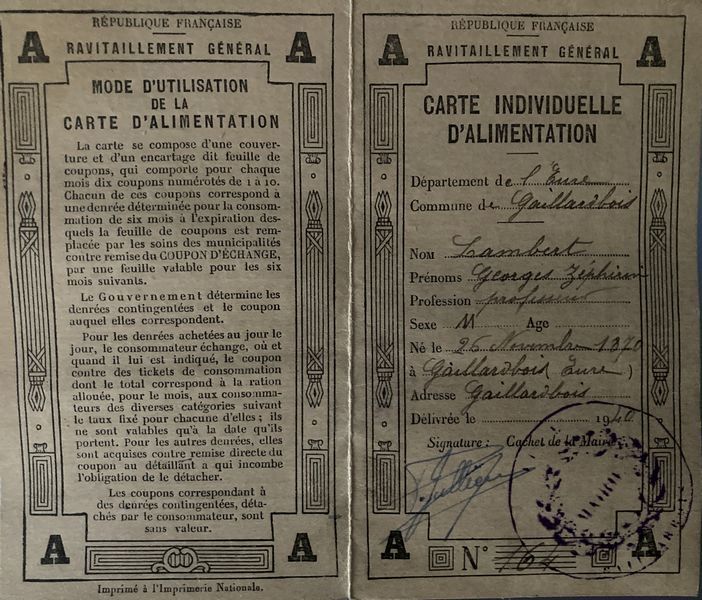 RÉPUBLIQUE FRANÇAISE
A RAVITAILLEMENT GÉNÉRAL A
MODE D'UTILISATION
DE LA
CARTE D'ALIMENTATION
La carte se compose d'une couver-
ture et d'un encartage dit feuille de
coupons, qui comporte pour chaque
mois dix coupons numérotés de 1 à 10.
Chacun de ces coupons correspond à
une denrée déterminée pour la consom-
mation de six mois à l'expiration des-
quels la feuille de coupons est rem-
placée par les soins des municipalités
contre remise du COUPON D'ÉCHANGE,
par une feuille valable pour les six
mois suivants.
Le Gouvernement détermine les
denrées contingentées et le coupon
auquel elles correspondent.
Pour les denrées achetées au jour le
jour, le consommateur échange, où et
quand il lui est indiqué, le coupon
contre des tickets de consommation
dont le total correspond à la ration
allouée, pour le mois, aux consomma-
teurs des diverses catégories suivant
le taux fixé pour chacune d'elles ; ils
ne sont valables qu'à la date qu'ils
portent. Pour les autres denrées, elles
sont acquises contre remise directe du
coupon au détaillant a qui incombe
l'obligation de le détacher.
Les coupons correspondant à
des denrées contingentées, déta-
chés par le consommateur, sont
sans valeur.
A A
Imprimé à l'Imprimerie Nationale.
RÉPUBLIQUE FRANÇAISE
A RAVITAILLEMENT GÉNÉRAL A
CARTE INDIVIDUELLE
D'ALIMENTATION
Département de l'Eure
Commune de Gaillardbois
Nom Lambert
Prénoms Georges Zéphirin
Profession professeur
Sexe M Age
Né le 26 Novembre 1870
à Gaillardbois (Eure)
Adresse Gaillardbois
Délivrée le 1940
Signature : Cachet de la Mairie
MAIRIE
A N° 164 A